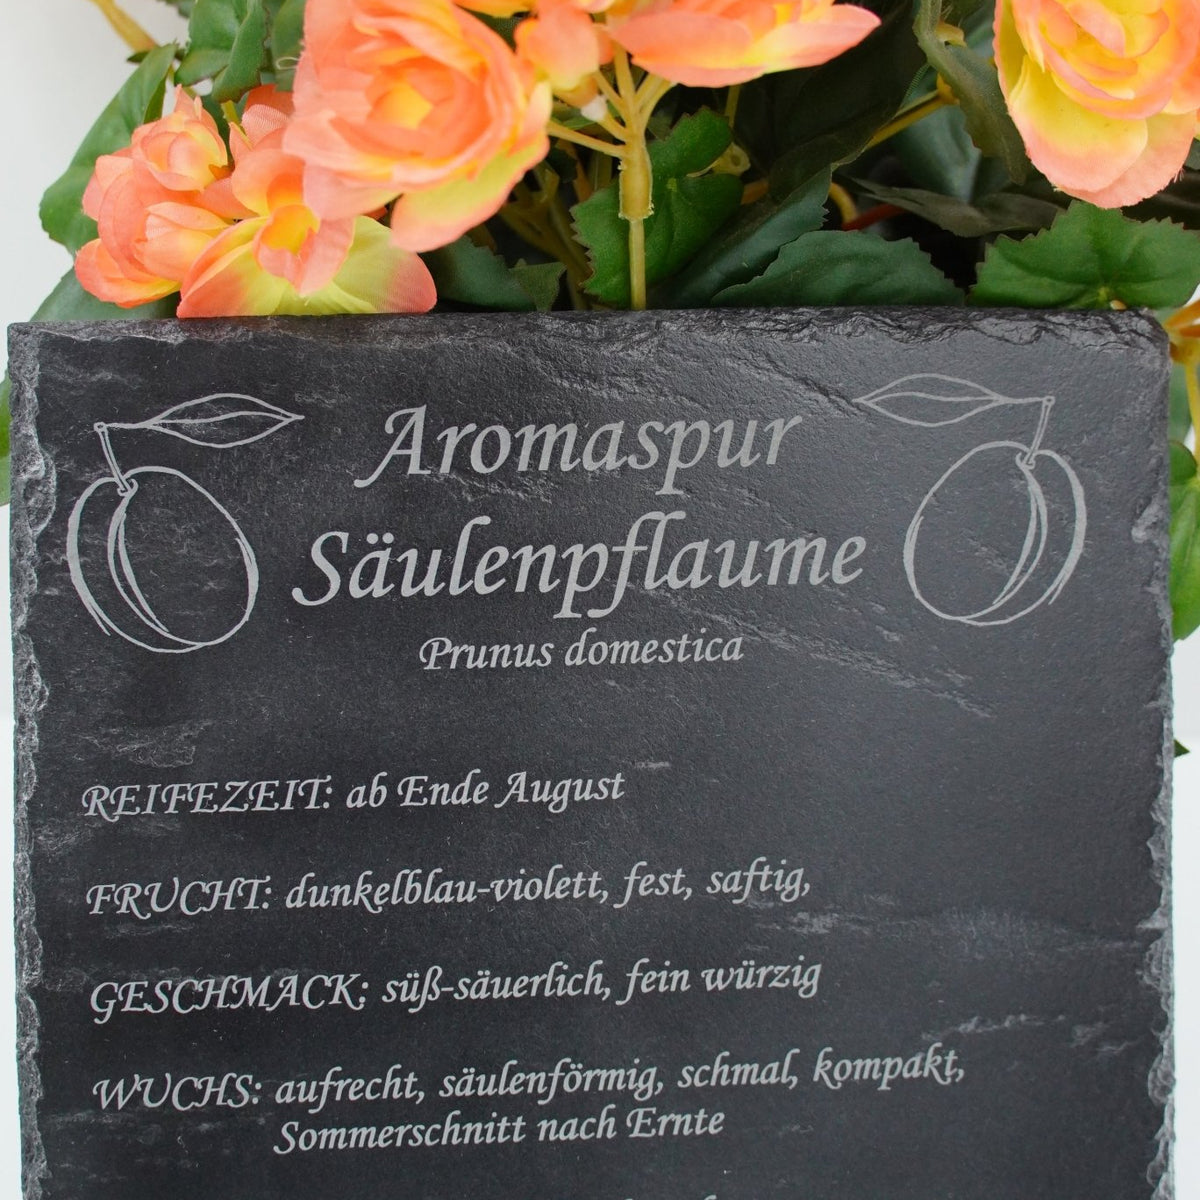 Aromaspur
Säulenpflaume
Prunus domestica
REIFEZEIT: ab Ende August
FRUCHT: dunkelblau-violett, fest, saftig,
GESCHMACK: süß-säuerlich, fein würzig
WUCHS: aufrecht, säulenförmig, schmal, kompakt,
Sommerschnitt nach Ernte